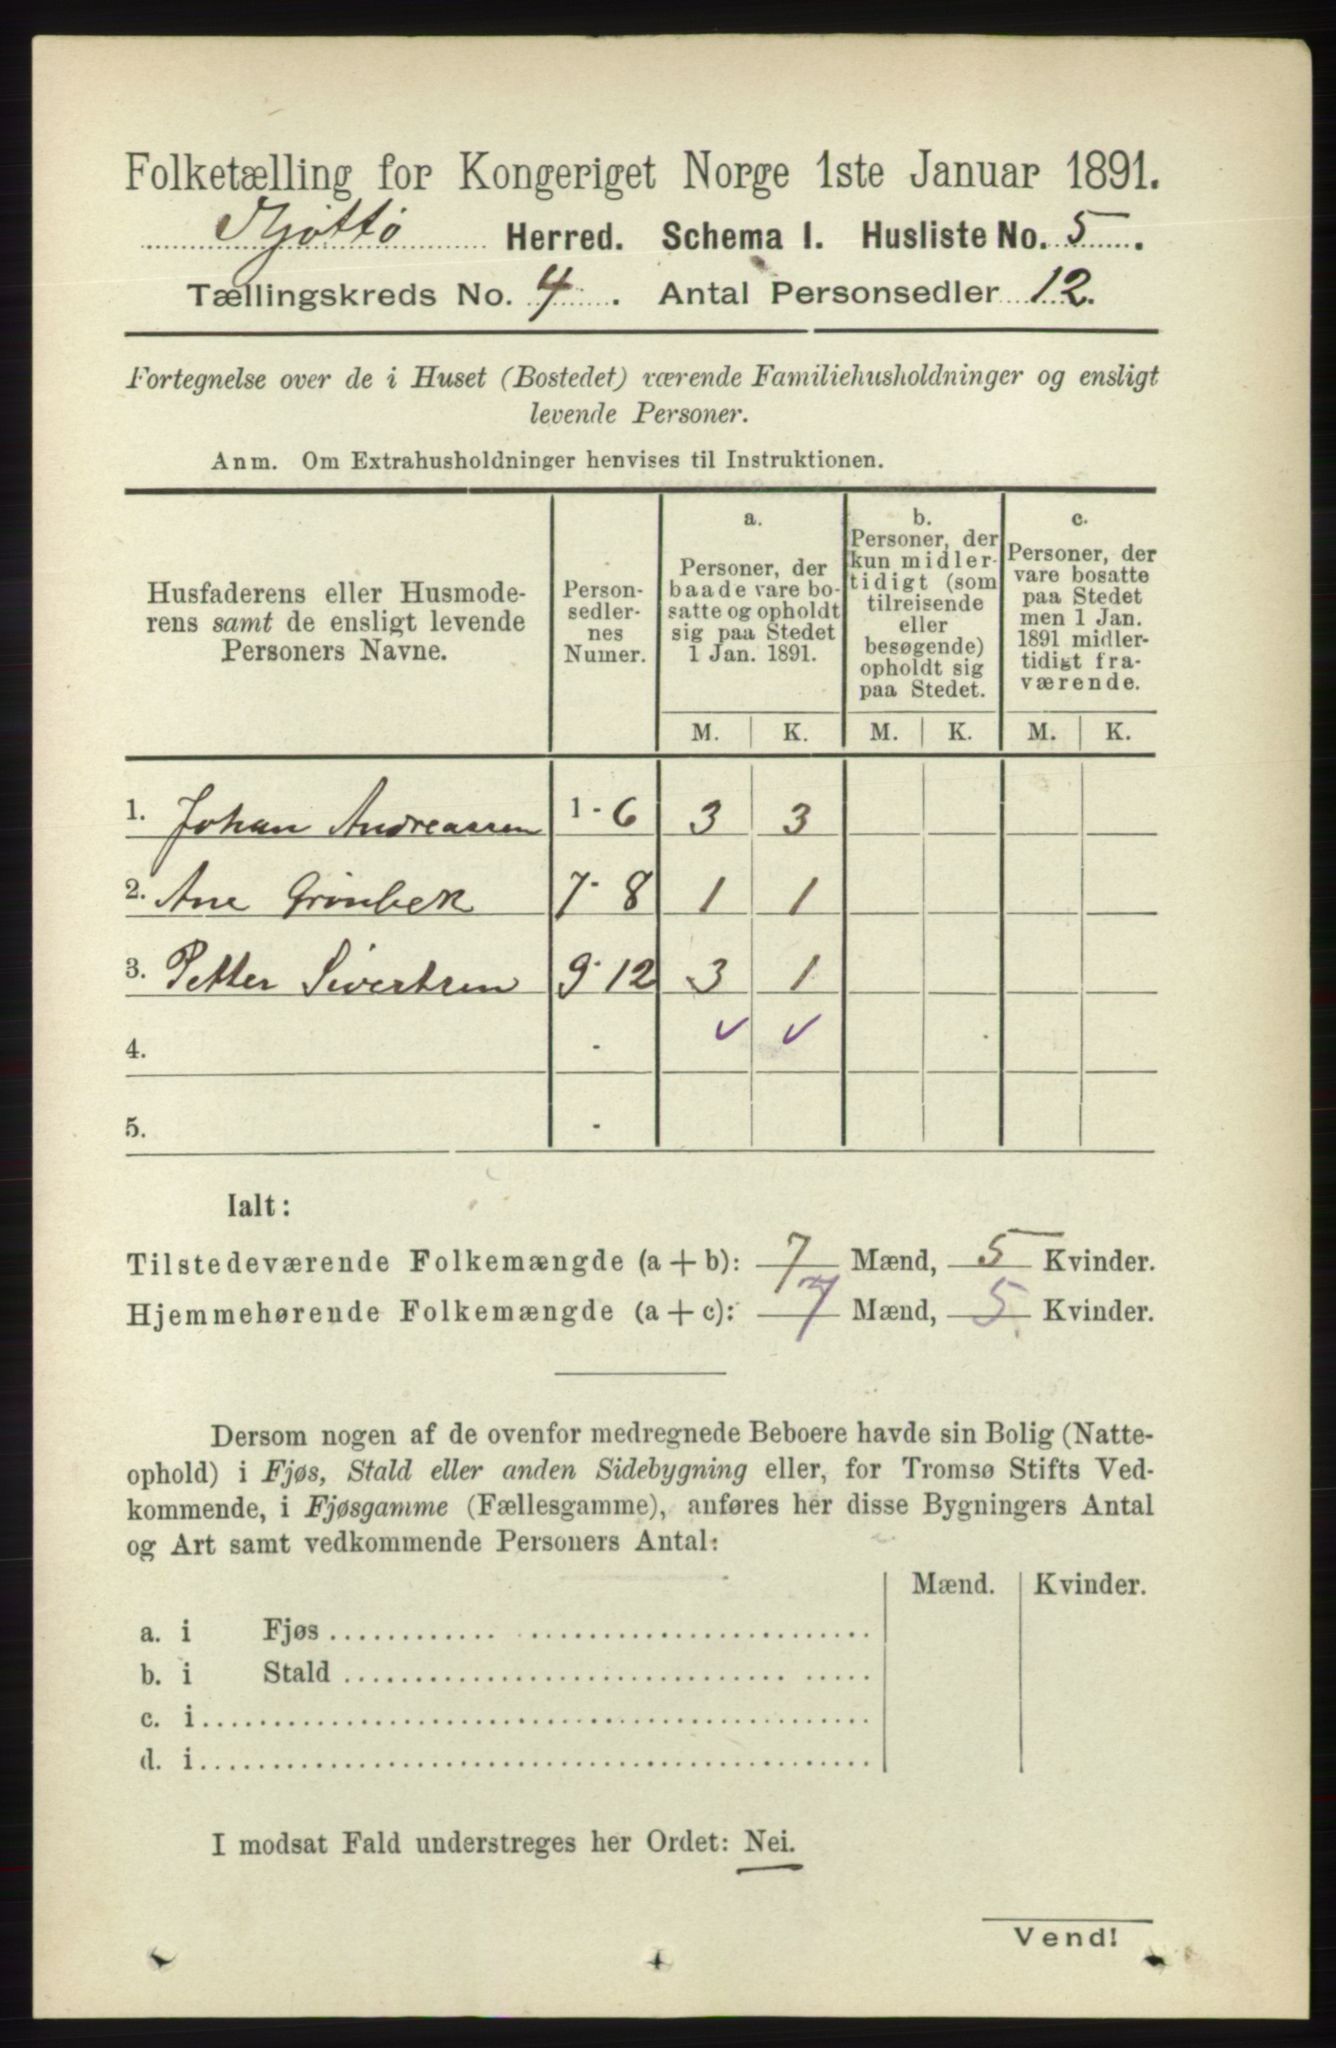 Folketælling for Kongeriget Norge 1ste Januar 1891.
Tjøttø Herred. Schema I. Husliste No. 5.
Tællingskreds No. 4. Antal Personsedler 12.
Fortegnelse over de i Huset (Bostedet) værende Familiehusholdninger og ensligt
levende Personer.
Anm. Om Extrahusholdninger henvises til Instruktionen.
Husfaderens eller Husmode-
rens samt de ensligt levende
Personers Navne.
Person-
sedler-
nes
Numer.
a.
Personer, der
baade vare bo-
satte og opholdt
sig paa Stedet
1 Jan. 1891.
b.
Personer, der
kun midler-
tidigt (som
tilreisende
eller
besøgende)
opholdt sig
paa Stedet.
c.
Personer, der
vare bosatte
paa Stedet
men 1 Jan.
1891 midler-
tidigt fra-
værende.
M. K. M. K. M. K.
1. Johan Andreassen 1-6 3 3
2. Ane Grönbek 7-8 1 1
3. Petter Sivertsen 9-12 3 1
4. - ✓ ✓
5. -
Ialt:
Tilstedeværende Folkemængde (a + b): 7 Mænd, 5 Kvinder.
Hjemmehørende Folkemængde (a + c): 7 Mænd, 5 Kvinder.
Dersom nogen af de ovenfor medregnede Beboere havde sin Bolig (Natte-
ophold) i Fjøs, Stald eller anden Sidebygning eller, for Tromsø Stifts Ved-
kommende, i Fjøsgamme (Fællesgamme), anføres her disse Bygningers Antal
og Art samt vedkommende Personers Antal:
Mænd. Kvinder.
a. i Fjøs
b. i Stald
c. i
d. i
I modsat Fald understreges her Ordet: Nei.
Vend!